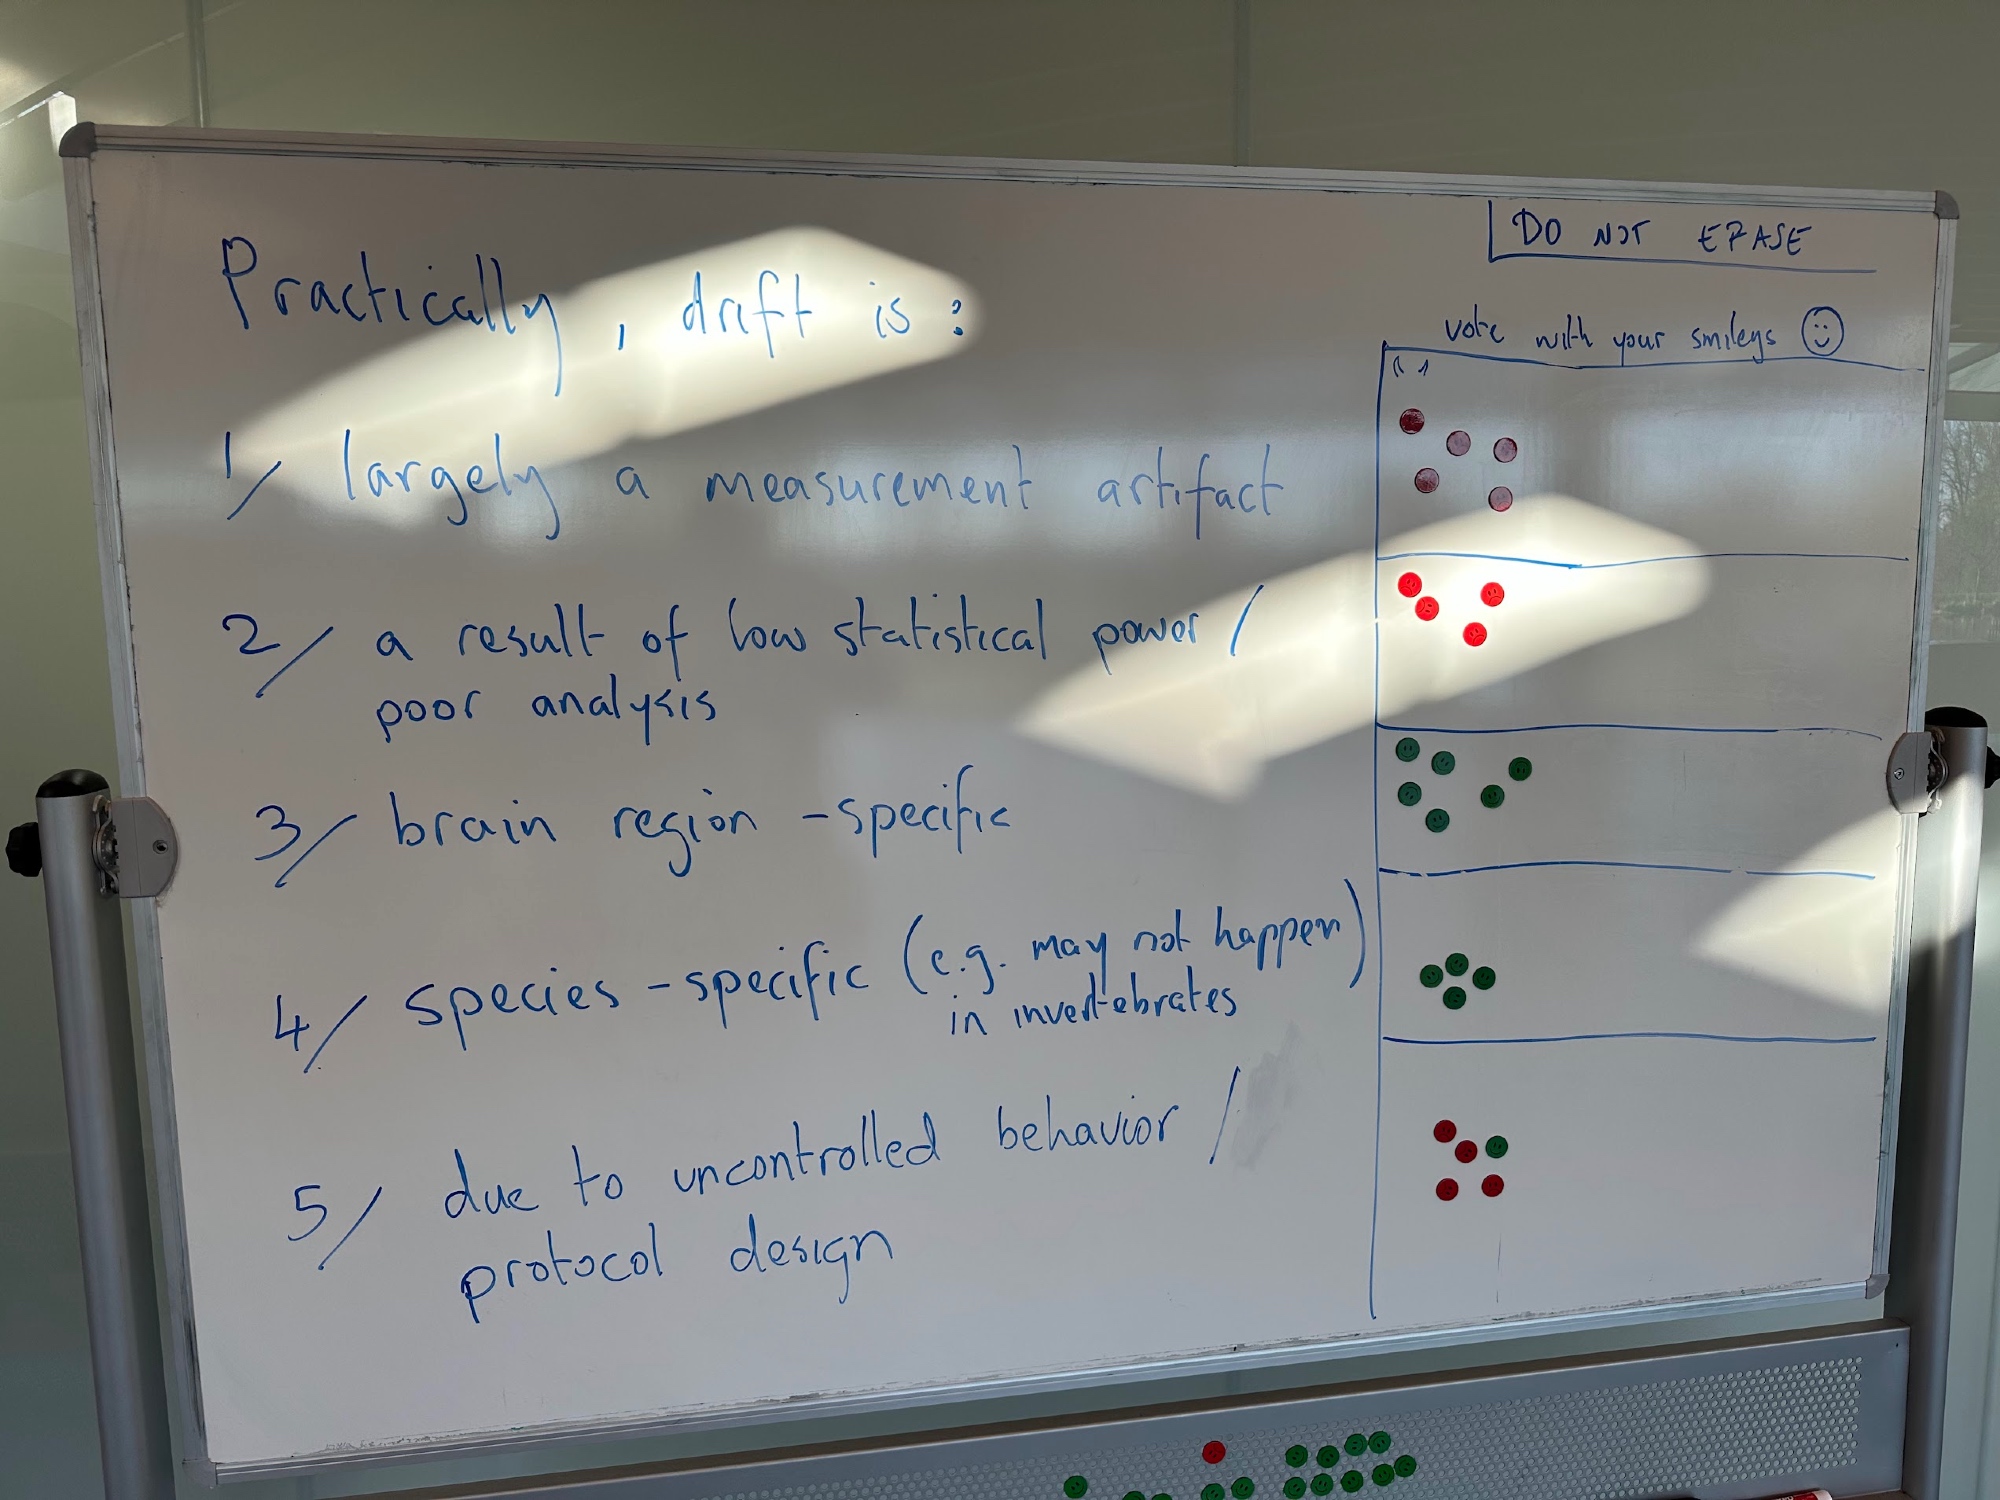 DO NOT ERASE
Practically, drift is:
vote with your smileys
1/ largely a measurement artifact
2/ a result of low statistical power /
poor analysis
3/ brain region-specific
4/ species-specific (e.g. may not happen)
in invertebrates
5/ due to uncontrolled behavior /
protocol design